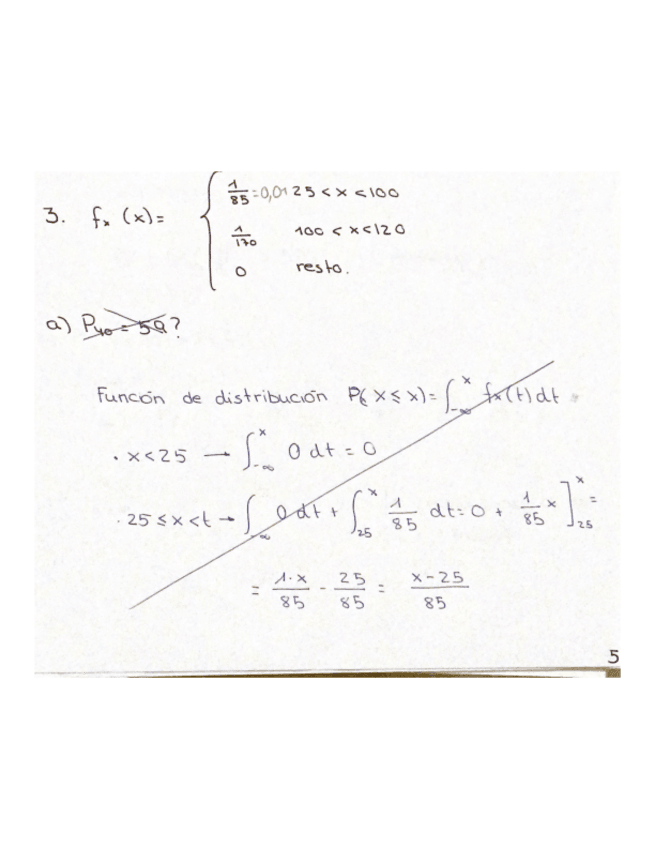 3. fx (x)=
1/85 = 0,01 25 < x < 100
1/170 100 < x < 120
0 resto.
a) P40 = 50?
Función de distribución P(X ≤ x) = ∫_{-∞}^{x} fx(t) dt
· x < 25 → ∫_{-∞}^{x} 0 dt = 0
· 25 ≤ x < t → ∫_{-∞} 0 dt + ∫_{25}^{x} 1/85 dt = 0 + 1/85 x ]_{25}^{x} =
= 1·x/85 - 25/85 = x-25/85
5